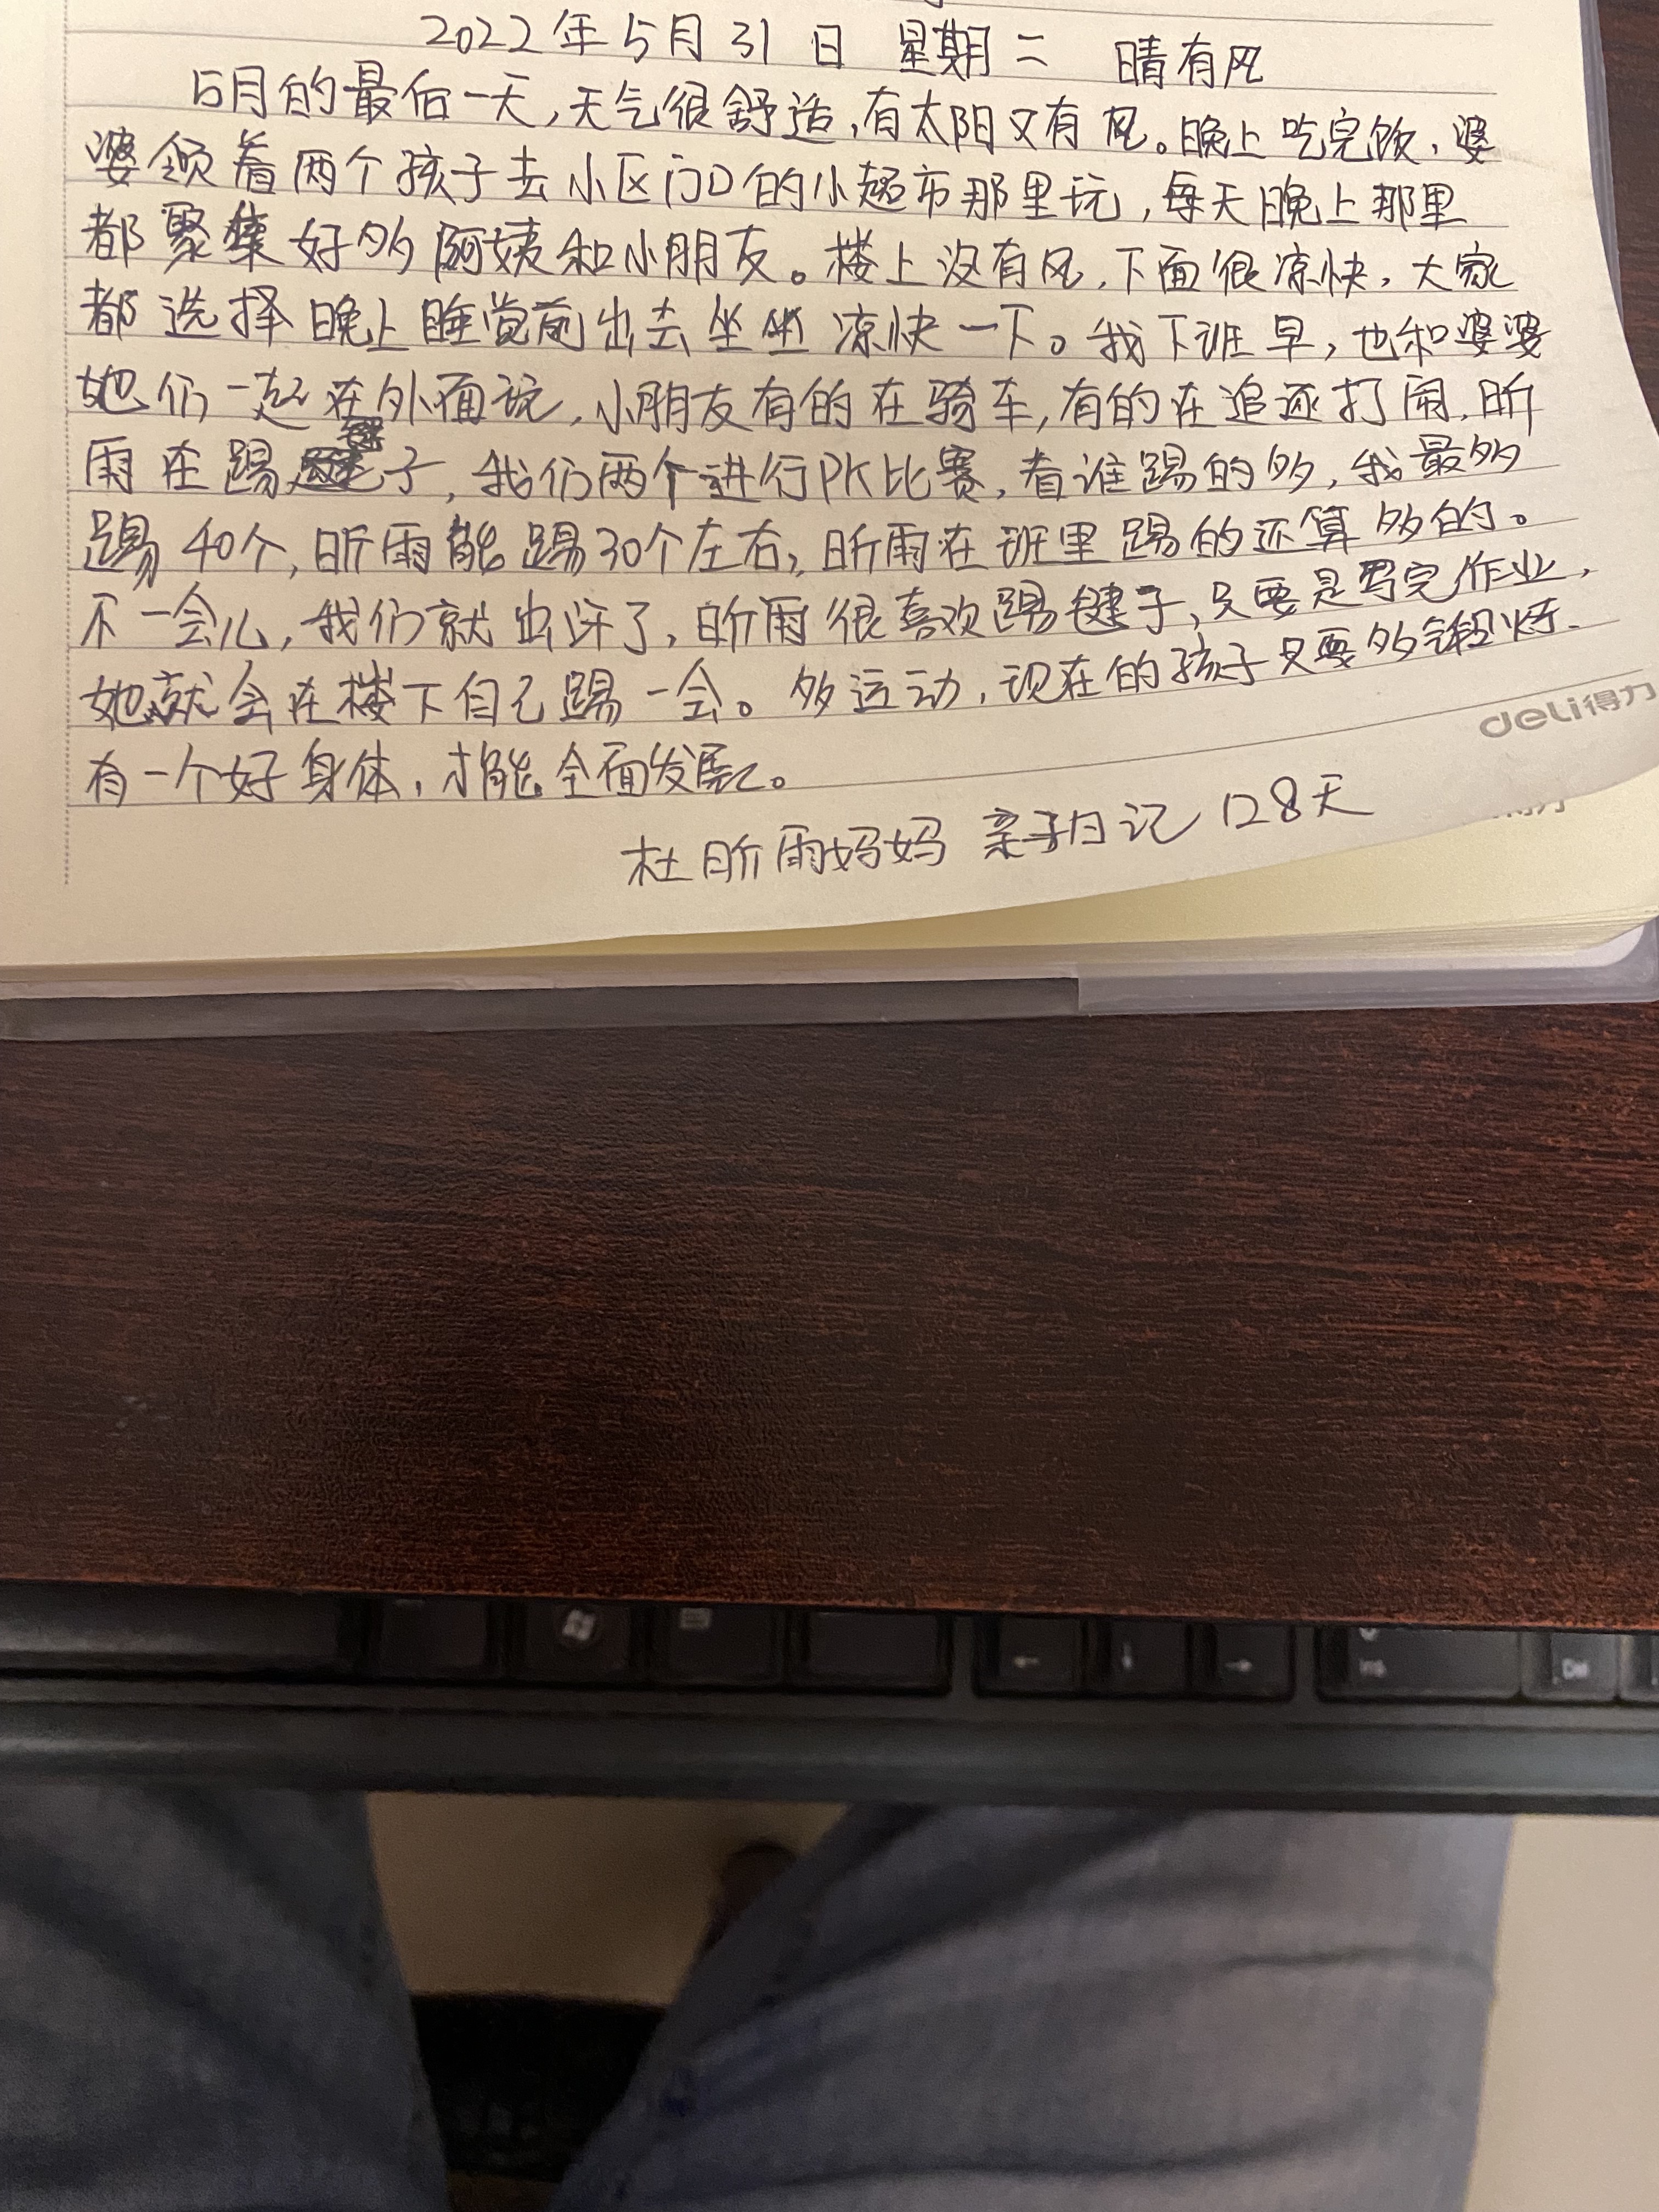 2022年5月31日 星期二 晴有风
5月的最后一天,天气很舒适,有太阳又有风。晚上吃完饭,婆
婆领着两个孩子去小区门口的小超市那里玩,每天晚上那里
都聚集好多阿姨和小朋友。楼上没有风,下面很凉快,大家
都选择晚上睡觉前出去坐坐凉快一下。我下班早,也和婆婆
她们一起在外面玩,小朋友有的在骑车,有的在追逐打闹,昕
雨在踢毽子,我们两个进行PK比赛,看谁踢的多,我最多
踢40个,昕雨能踢30个左右,昕雨在班里踢的还算多的。
不一会儿,我们就出汗了,昕雨很喜欢踢毽子,只要是写完作业,
她就会在楼下自己踢一会。多运动,现在的孩子只要多锻炼.
deli得力
有一个好身体,才能全面发展。
杜昕雨妈妈 亲子日记 128天
Ins
Del